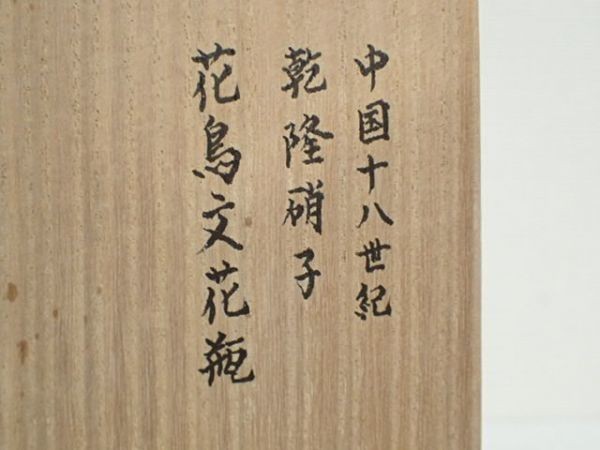 中国十八世紀
乾隆硝子
花鳥文花瓶